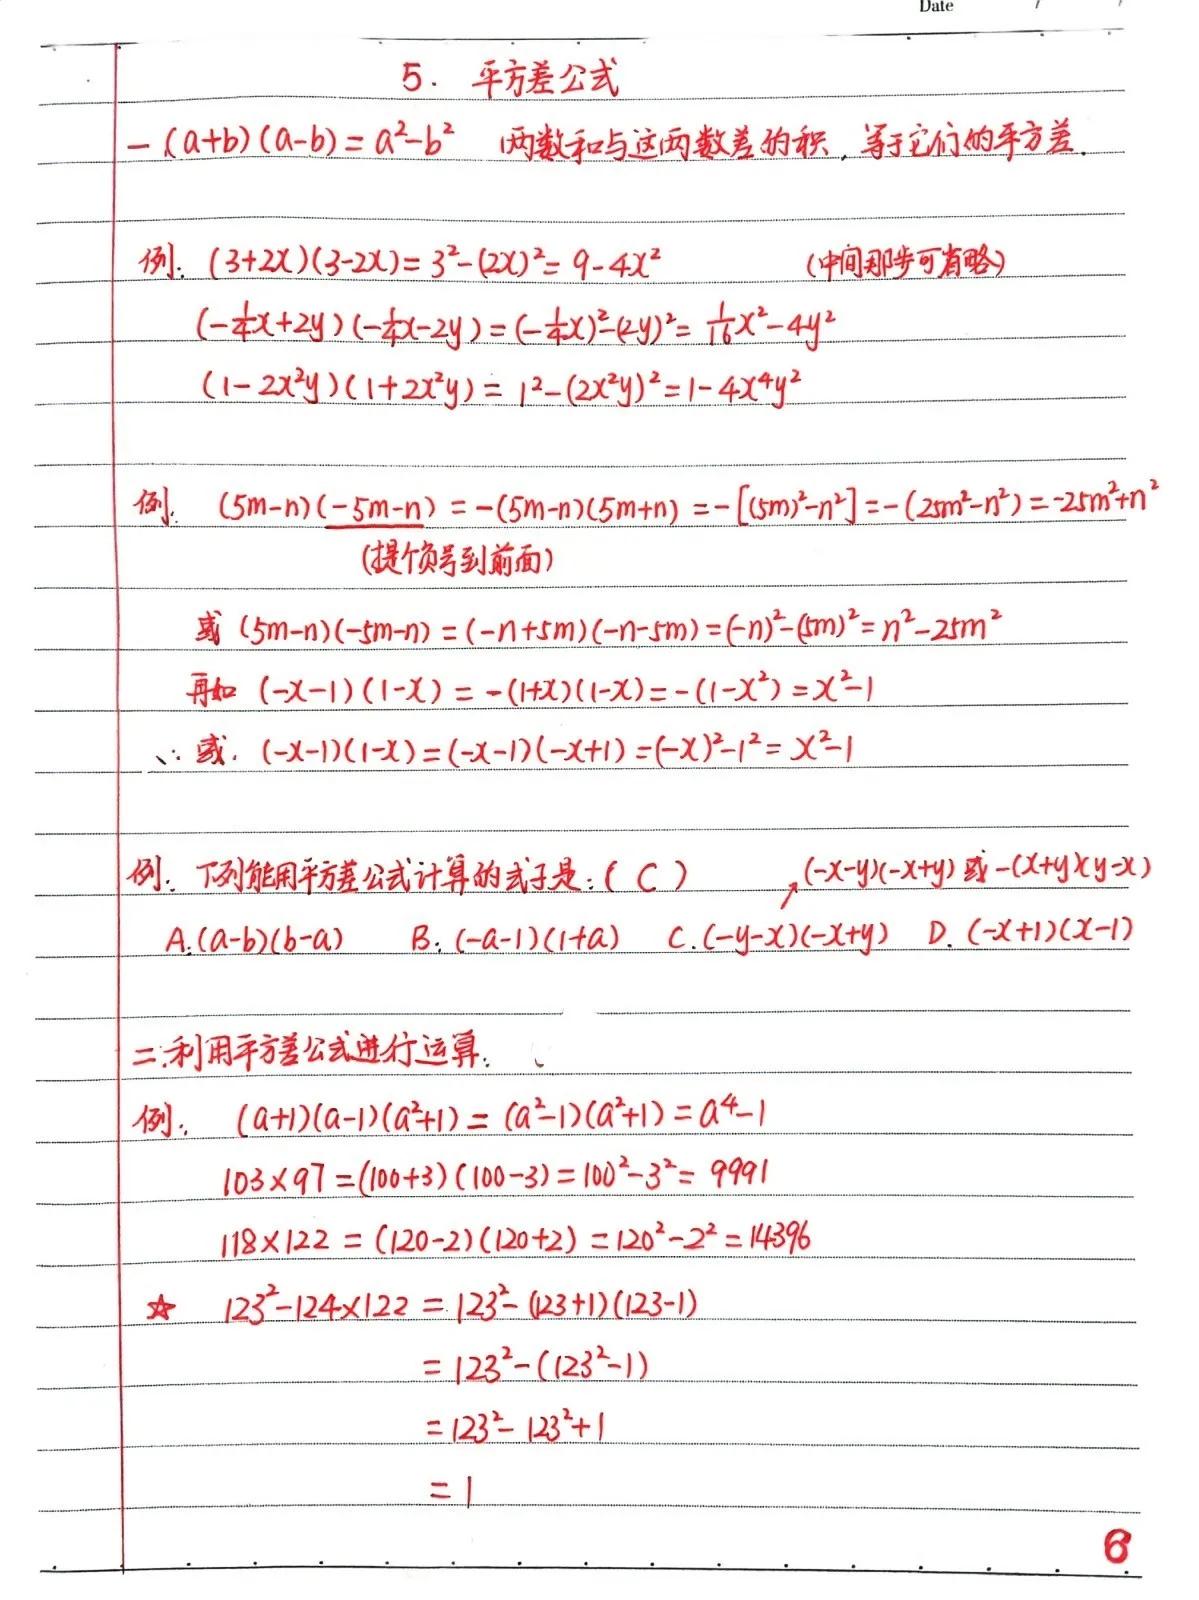 Date / /
5. 平方差公式
一 (a+b)(a-b)=a²-b² 两数和与这两数差的积,等于它们的平方差.
例: (3+2x)(3-2x)=3²-(2x)²=9-4x² (中间那步可省略)
(-¼x+2y)(-¼x-2y)=(-¼x)²-(2y)²=1/16x²-4y²
(1-2x²y)(1+2x²y)=1²-(2x²y)²=1-4x⁴y²
例. (5m-n)(-5m-n)=-(5m-n)(5m+n)=-[(5m)²-n²]=-(25m²-n²)=-25m²+n²
(提个负号到前面)
或 (5m-n)(-5m-n)=(-n+5m)(-n-5m)=(-n)²-(5m)²=n²-25m²
再如 (-x-1)(1-x)=-(1+x)(1-x)=-(1-x²)=x²-1
或. (-x-1)(1-x)=(-x-1)(-x+1)=(-x)²-1²=x²-1
例: 下列能用平方差公式计算的式子是:( C ) (-x-y)(-x+y) 或 -(x+y)(y-x)
A.(a-b)(b-a) B.(-a-1)(1+a) C.(-y-x)(-x+y) D.(-x+1)(x-1)
二.利用平方差公式进行运算.
例: (a+1)(a-1)(a²+1)=(a²-1)(a²+1)=a⁴-1
103×97=(100+3)(100-3)=100²-3²=9991
118×122=(120-2)(120+2)=120²-2²=14396
☆ 123²-124×122=123²-(123+1)(123-1)
=123²-(123²-1)
=123²-123²+1
=1
6